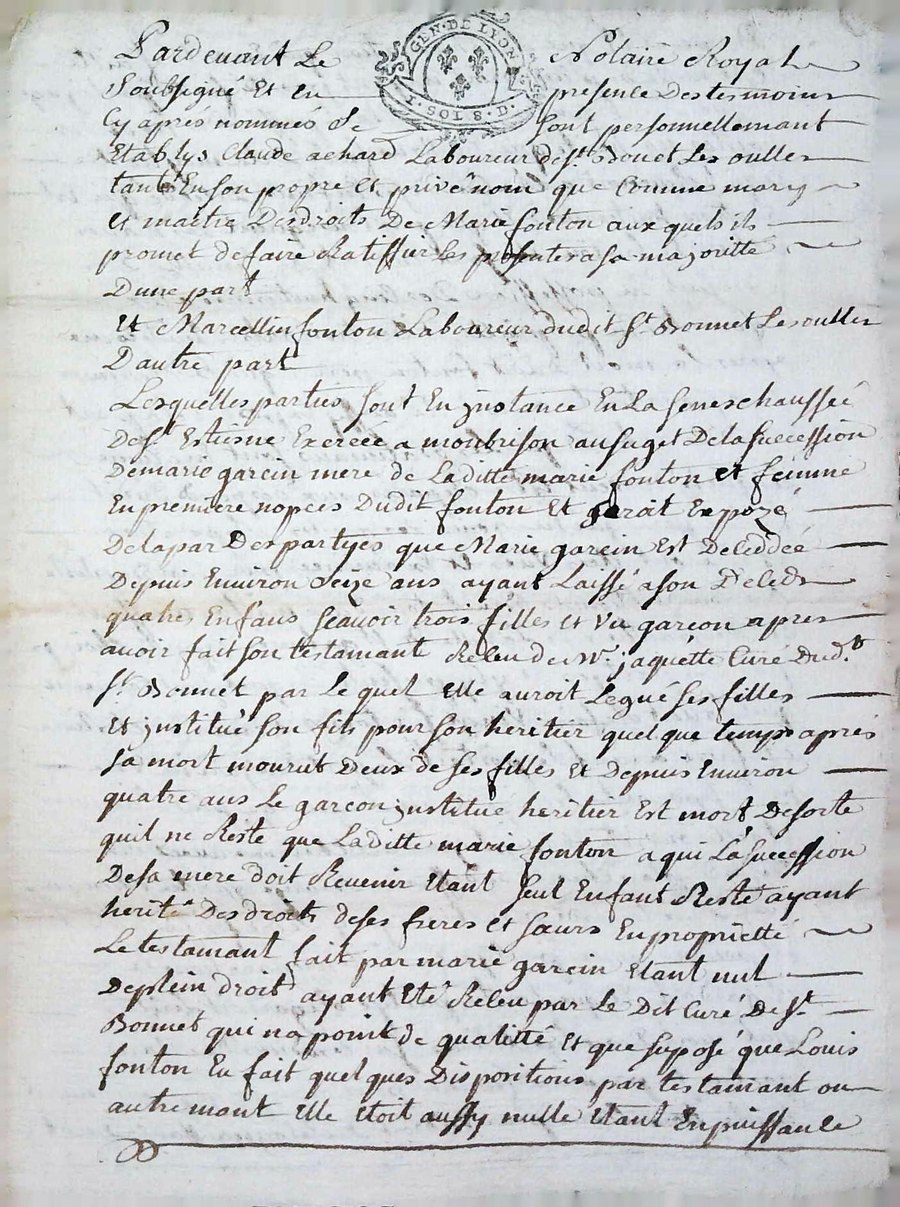 GEN. DE LYON
1. SOL 8. D.
Pardevant Le Notaire Royal
Soubsigné Et En presence Des tesmoins
Cy apres nommés Se sont personnellemant
Etablys Claude achard Laboureur de St. Bonet Les oulles
tant En son propre Et privé nom que Comme mary
Et maitre Des droits De Marie fonton aux quels ils
promet de faire Ratiffier Les presentes a sa majoritte
Dune part
Et Marcellin fonton Laboureur dudit St Bonnet Les oulles
Dautre part
Lesquelles parties sont En jnstance En La seneschaussée
De St Estiene Exercée a monbrison au suget De la succession
De marie garcin mere de Laditte marie fonton et femme
En premiere nopces Dudit fonton Et seroit Expozé
De la par Des partyes que Marie garcin Est Deleddée
Depuis Environ Seize ans ayant Laissé a son Deleds
quatre Enfans scavoir trois filles et Vn garcon apres
avoir fait son testamant Releu de Mr. jaquette Curé Dud.t
St. Bonnet par Le quel Elle auroit Legué ses filles
Et jnstitué son fils pour son heritier quelque temps aprés
sa mort mourut Deux de ses filles Et Depuis Environ
quatre ans Le garcon jnstitué heritier Est mort De sorte
quil ne Reste que Laditte marie fonton a qui La succession
De sa mere doit Revenir Etant seul Enfant Resté ayant
herité Des droits de ses freres et sœurs En proprietté
Le testamant fait par marie garcin Etant nul
De plein droit ayant Eté Releu par Le Dit Curé De St.
Bonnet qui na point de qualitté Et que suposé que Louis
fonton Eu fait quelques Dispositions par testamant ou
autremant Elle Etoit aussy nulle Etant En puissance